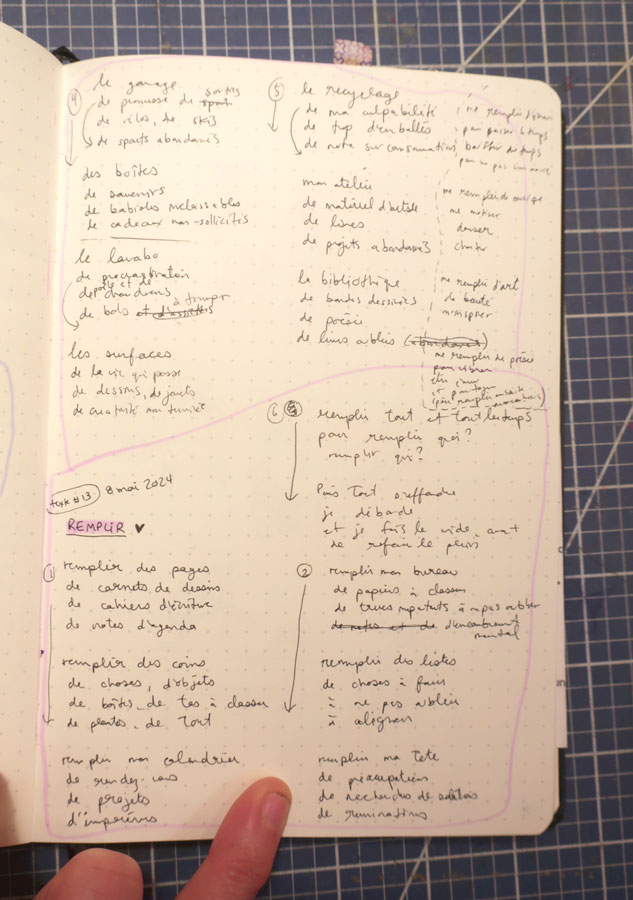 ④
le garage
de promesse de sorties
de vélos, de skis
de sports abandonnés
des boîtes
de souvenirs
de babioles inclassables
de cadeaux non-sollicités
le lavabo
de procrastination
de bols et d'assiettes à tremper
les surfaces
de la vie qui passe
de dessins, de jouets
de créativité non terminée
⑤
le recyclage
de ma culpabilité
de trop d'emballés
de notre surconsommation
mon atelier
de matériel d'artiste
de livres
de projets abandonnés
la bibliothèque
de bandes dessinées
de poésie
de livres oubliés (abandonnés)
me remplir de musique
me motiver
danser
chanter
me remplir d'art
de beauté
m'inspirer
me remplir de poésie
pour vibrer
être émue
et partager
⑥
remplir tout et tout le temps
pour remplir quoi?
remplir qui?
Puis tout s'effondre
je déborde
et je fais le vide avant
de refaire le plein
texte #13 8 mai 2024
REMPLIR ♥
①
remplir des pages
de carnets de dessins
de cahiers d'écriture
de notes d'agenda
remplir des coins
de choses, d'objets
de boîtes de tas à classer
de plantes, de tout
remplir mon calendrier
de rendez-vous
de projets
d'imprévus
②
remplir mon bureau
de papiers à classer
de trucs importants à ne pas oublier
de notes et de d'encombrement
mental
remplir des listes
de choses à faire
à ne pas oublier
à aligner
remplir ma tête
de préoccupations
de recherches de solutions
de ruminations